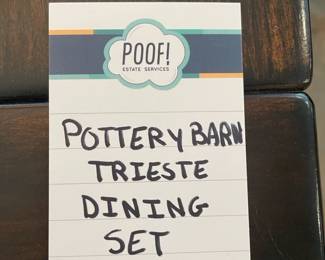 POOF!
ESTATE SERVICES
POTTERY BARN
TRIESTE
DINING
SET